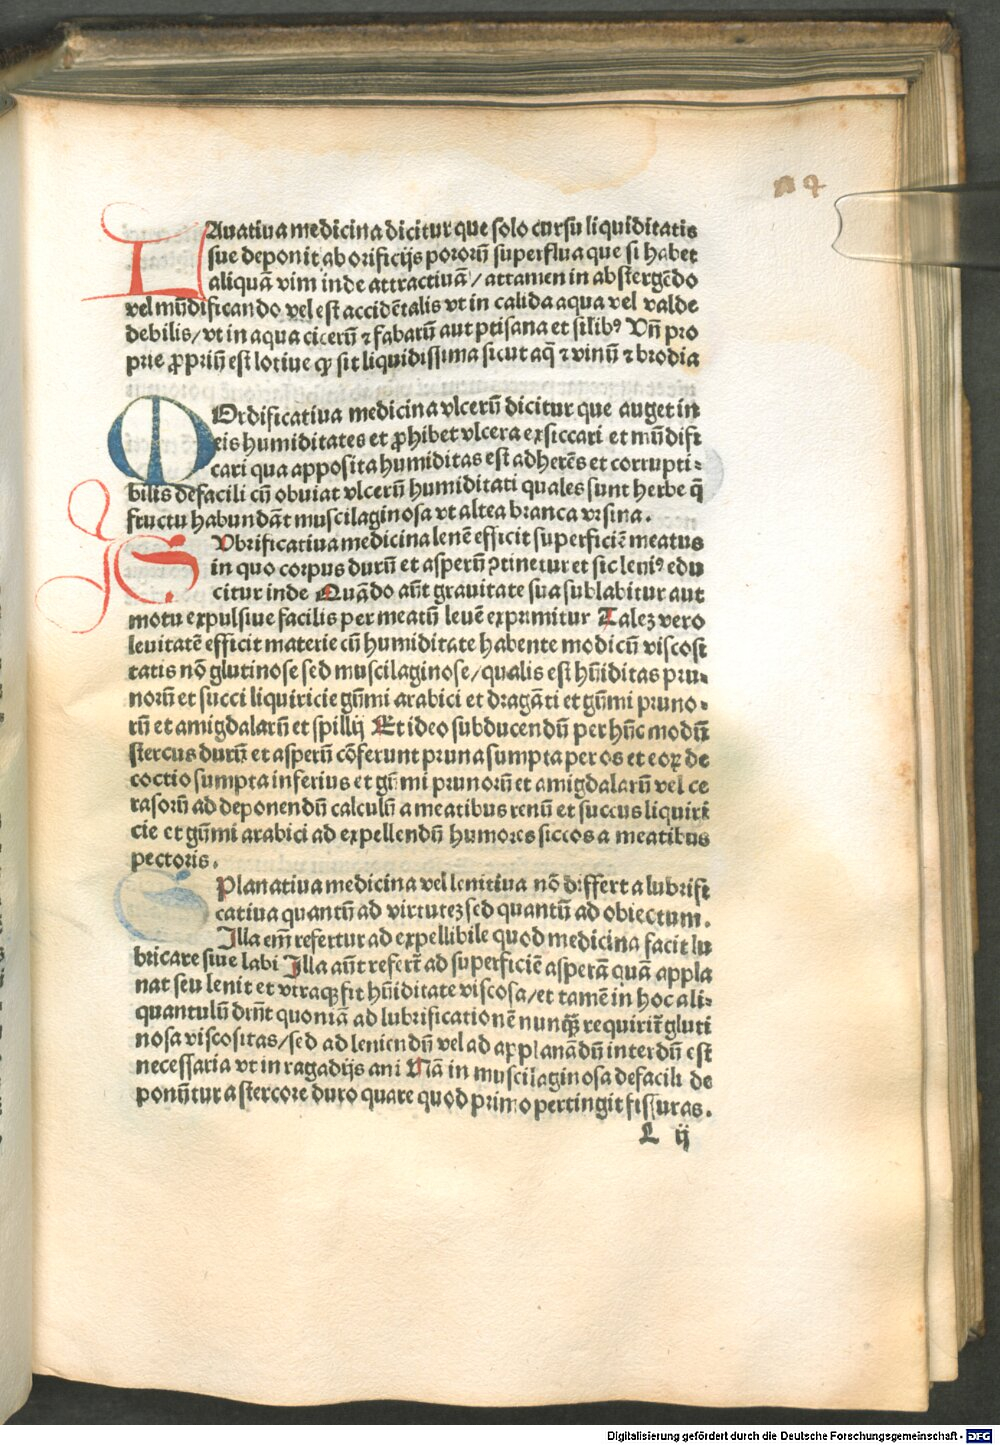 LAuatiua medicina dicitur que solo cursu liquiditatis
sue deponit ab orificijs pororū superflua que si habet
aliquā vim inde attractiuā / attamen in abstergēdo
vel mūdificando vel est accidētalis vt in calida aqua vel valde
debilis / vt in aqua cicerū ⁊ fabarū aut ptisana et silibꝰ Vn̄ pro
prie ꝓpriū est lotiue ꝙ sit liquidissima sicut aq̄ ⁊ vinū ⁊ brodia
MOrdificatiua medicina vlcerū dicitur que auget in
eis humiditates et ꝓhibet vlcera exsiccari et mūdifi
cari qua apposita humiditas est adherēs et corrupti⸗
bilis defacili cū obuiat vlcerū humiditati quales sunt herbe q̄
fructu habundāt muscilaginosa vt altea branca vrsina.
SVbrificatiua medicina lenē efficit superficiē meatus
in quo corpus durū et asperū ↄtinetur et sic leniꝰ edu
citur inde Quādo aūt grauitate sua sublabitur aut
motu expulsiue facilis per meatū leuē exprimitur Talez vero
leuitatē efficit materie cū humiditate habente modicū viscosi
tatis nō glutinose sed muscilaginose / qualis est hūiditas pru⸗
norū et succi liquiricie gūmi arabici et dragāti et gūmi pruno⸗
rū et amigdalarū et spillij Et ideo subducendū per hūc modū
stercus durū et asperū cōferunt pruna sumpta per os et eoꝝ de
coctio sumpta inferius et gūmi prunorū et amigdalarū vel ce
rasorū ad deponendū calculū a meatibus renū et succus liquiri
cie et gūmi arabici ad expellendū humores siccos a meatibus
pectoris.
SPlanatiua medicina vel lenitiua nō differt a lubrifi
catiua quantū ad virtutez sed quantū ad obiectum.
Illa em̄ refertur ad expellibile quod medicina facit lu
bricare siue labi Illa aūt refert̄ ad superficiē asperā quā appla
nat seu lenit et vtraqꝫ fit hūiditate viscosa / et tamē in hoc ali⸗
quantulū drn̄t quoniā ad lubrificationē nunqꝫ̄ requirit̄ gluti
nosa viscositas / sed ad leniendū vel ad applanādū interdū est
necessaria vt in ragadijs ani Nā in muscilaginosa defacili de
ponūtur a stercore duro quare quod primo pertingit fissuras.
L ij
Digitalisierung gefördert durch die Deutsche Forschungsgemeinschaft - DFG